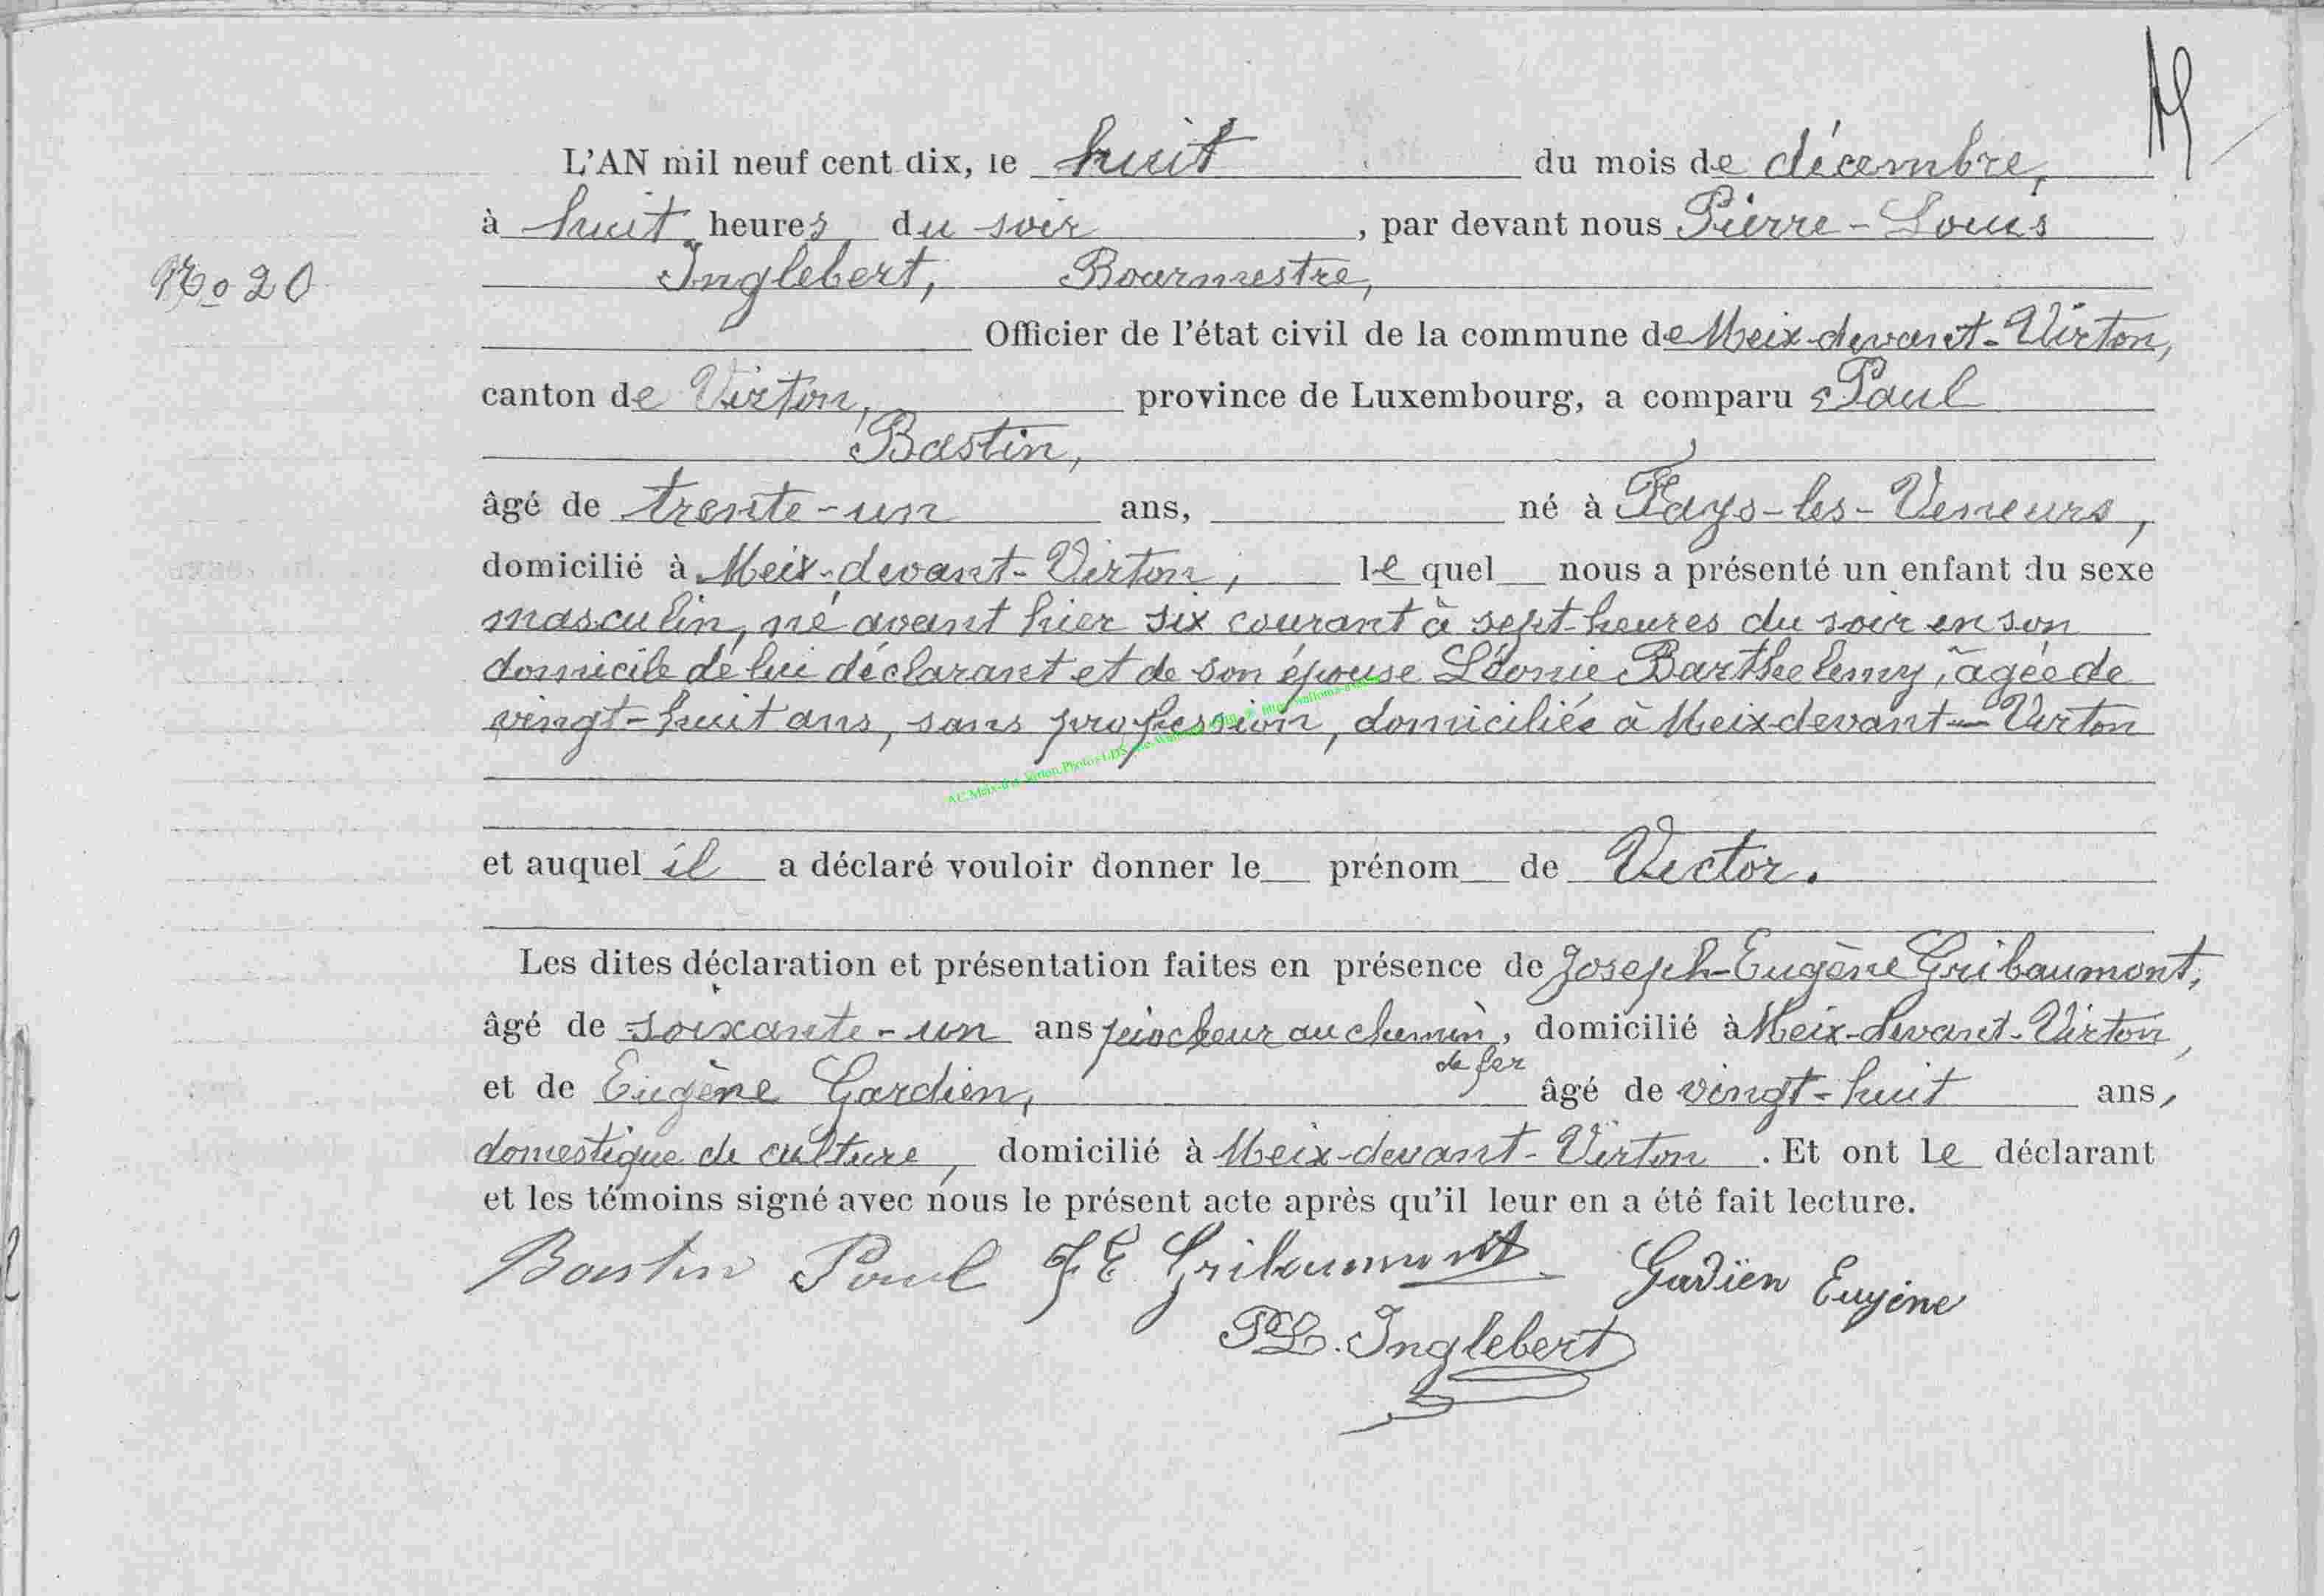 L'AN mil neuf cent dix, le huit du mois de décembre,
à huit heures du soir, par devant nous Pierre-Louis
No 20
Inglebert, Bourmestre,
Officier de l'état civil de la commune de Meix-devant-Virton,
canton de Virton, province de Luxembourg, a comparu Paul
Bastin,
âgé de trente-un ans, né à Fays-les-Veneurs,
domicilié à Meix-devant-Virton, le quel nous a présenté un enfant du sexe
masculin, né avant hier six courant à sept heures du soir en son
domicile de lui déclarant et de son épouse Léonie Barthelemy, âgée de
vingt-huit ans, sans profession, domiciliée à Meix-devant-Virton
et auquel il a déclaré vouloir donner le prénom de Victor.
Les dites déclaration et présentation faites en présence de Joseph-Eugène Gribaumont,
âgé de soixante-un ans piocheur au chemin de fer, domicilié à Meix-devant-Virton,
et de Eugène Gardien, âgé de vingt-huit ans,
domestique de culture, domicilié à Meix-devant-Virton. Et ont le déclarant
et les témoins signé avec nous le présent acte après qu'il leur en a été fait lecture.
Bastin Paul J E Gribaumont Gardien Eugène
PL. Inglebert